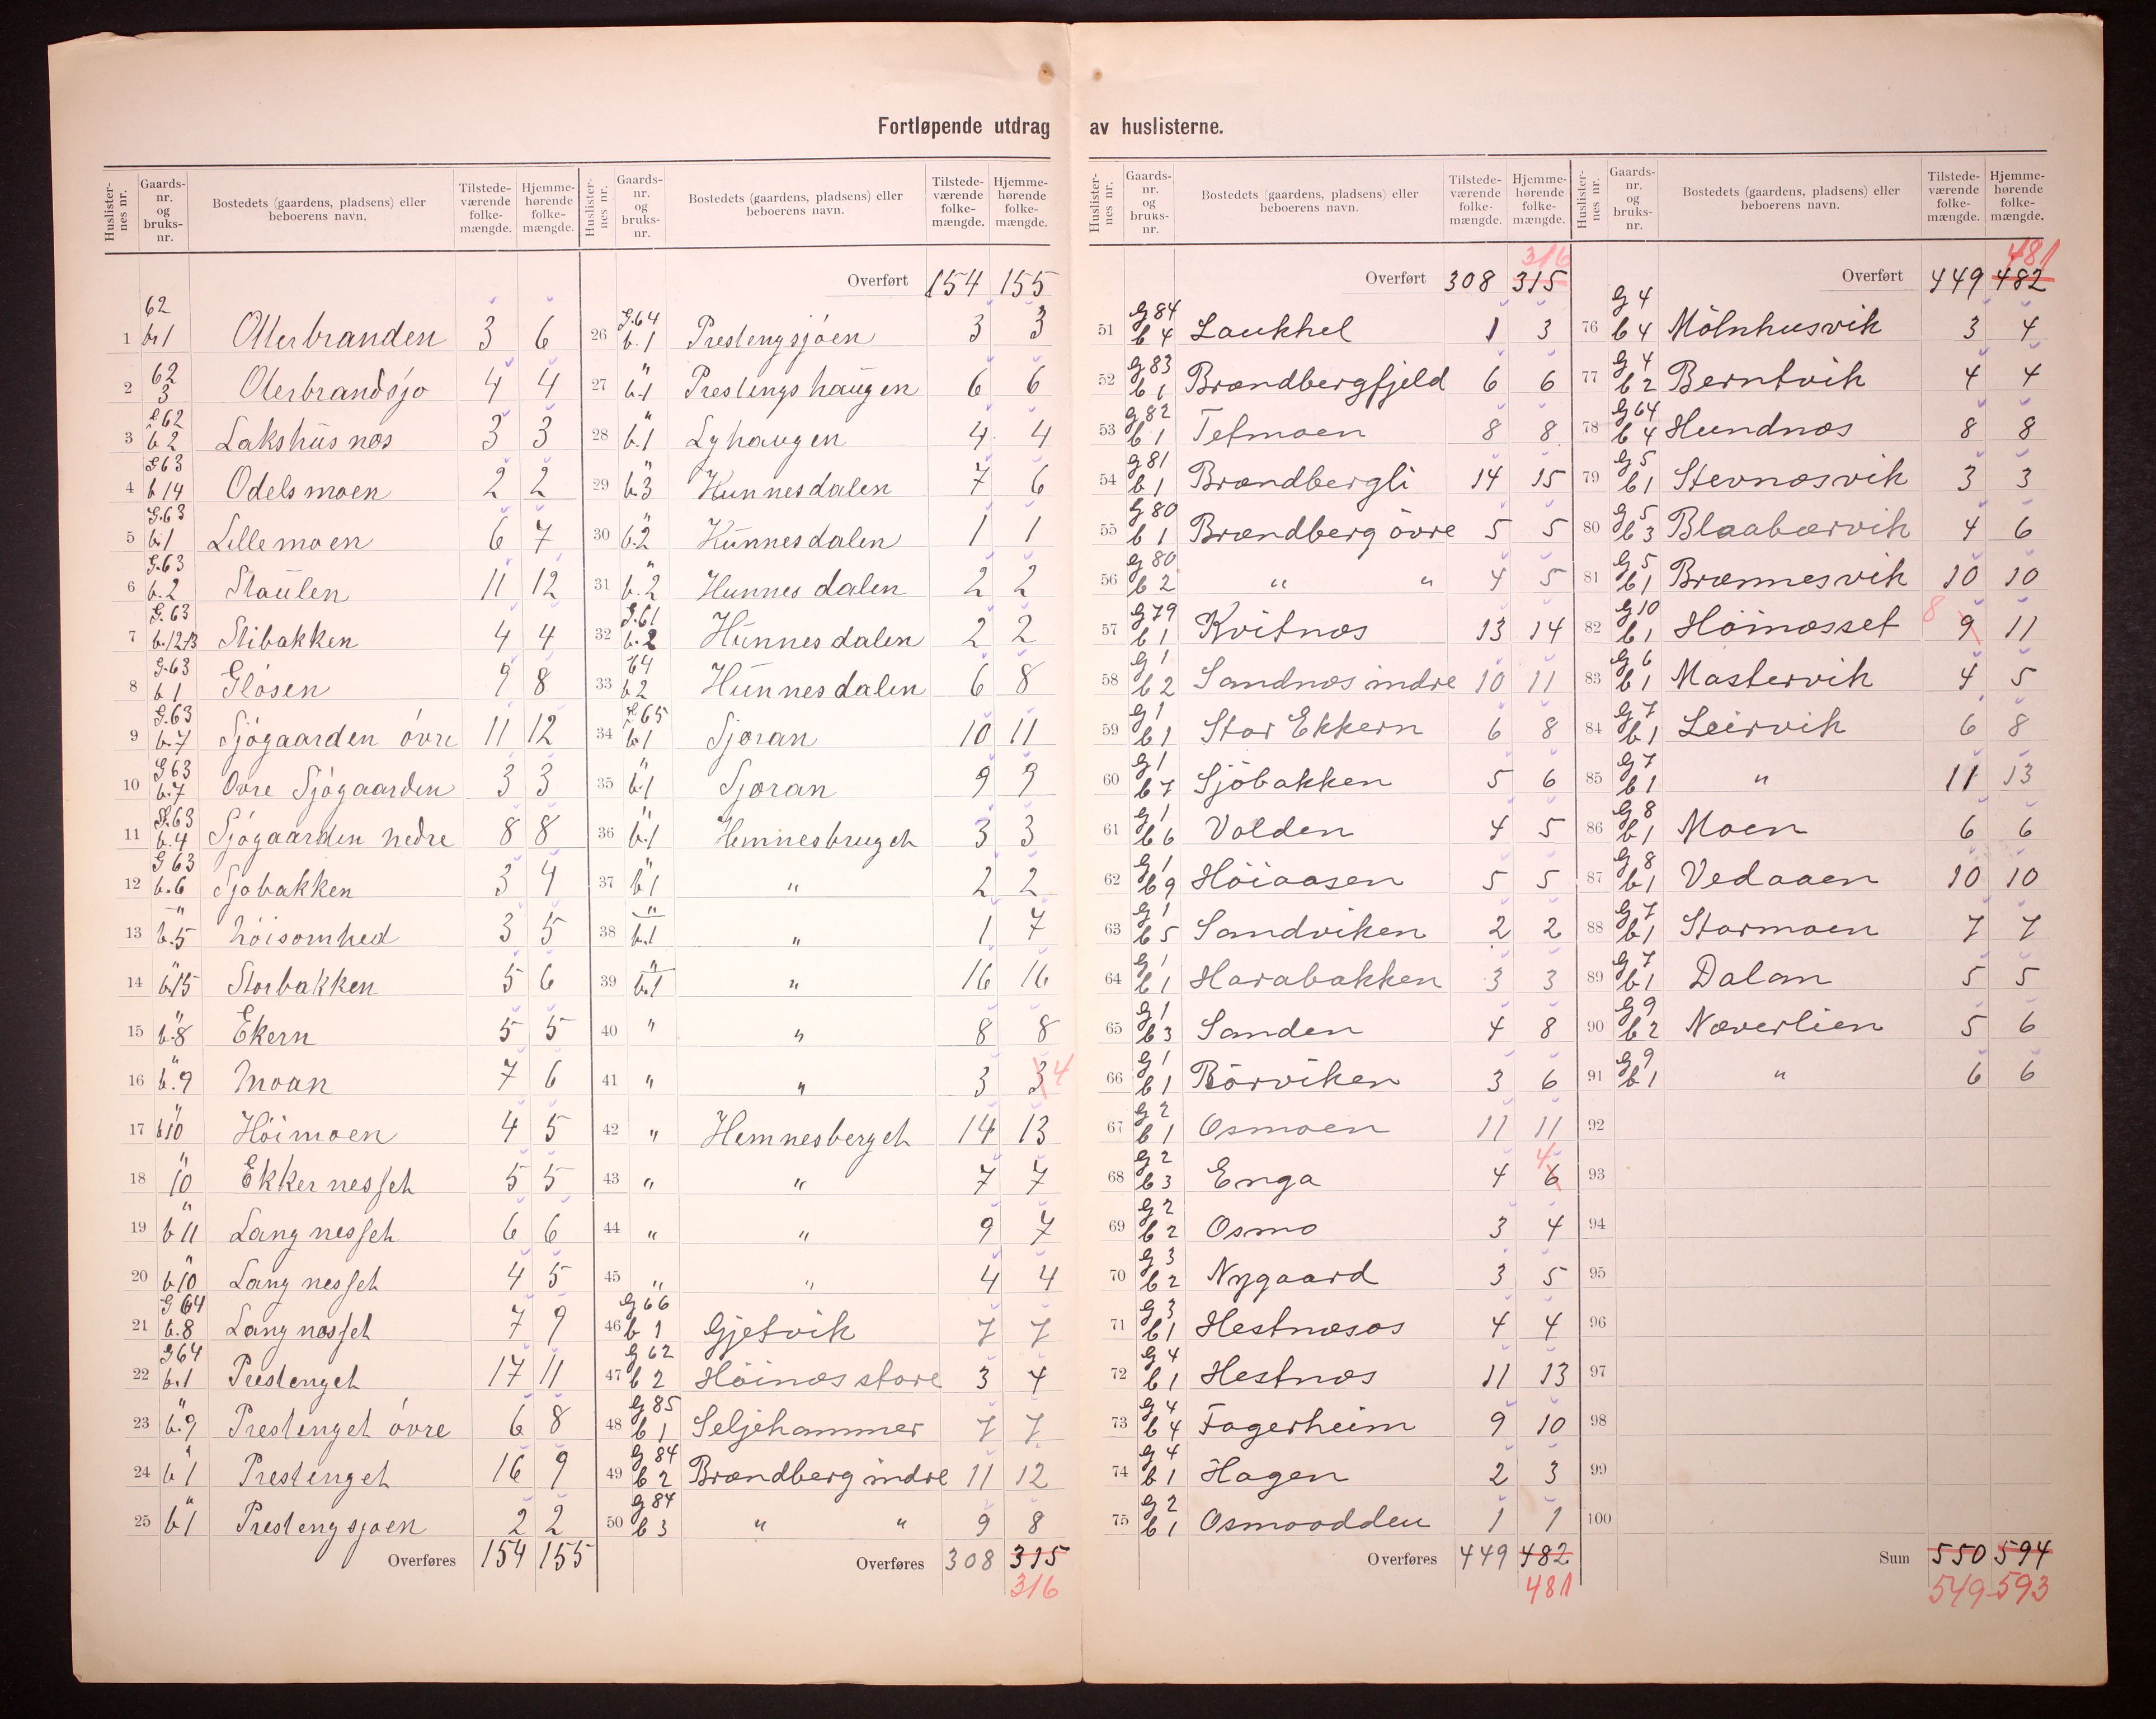 Fortløpende utdrag av huslisterne.
Huslister-nes nr. Gaards-nr. og bruks-nr. Bostedets (gaardens, pladsens) eller beboerens navn. Tilstede-værende folke-mængde. Hjemme-hørende folke-mængde.
1 62 b1 Oterbranden 3 6
2 62 3 Oterbrandsjo 4 4
3 G62 b2 Lakshusnæs 3 3
4 G63 b14 Odelsmoen 2 2
5 G.63 b1 Lillemoen 6 7
6 G.63 b.2 Staulen 11 12
7 G.63 b.12.13 Stibakken 4 4
8 G.63 b1 Glosen 9 8
9 G.63 b.7 Sjøgaarden óvre 11 12
10 G63 b.7 Ovre Sjógaarden 3 3
11 G.63 b.4 Sjøgaarden nedre 8 8
12 G63 b.6 Sjobakken 3 4
13 " b.5 Nóisomhed 3 5
14 " b15 Storbakken 5 6
15 " b.8 Ekern 5 5
16 " b.9 Moan 7 6
17 " b10 Hóimoen 4 5
18 " 10 Ekkernesset 5 5
19 " b11 Langnesset 6 6
20 " b10 Langnesset 4 5
21 G64 b.8 Langnæsset 7 9
22 G64 b.1 Prestenget 17 11
23 " b.9 Prestenget óvre 6 8
24 " b1 Prestenget 16 9
25 " b1 Prestengsjoen 2 2
Overføres 154 155
Huslister-nes nr. Gaards-nr. og bruks-nr. Bostedets (gaardens, pladsens) eller beboerens navn. Tilstede-værende folke-mængde. Hjemme-hørende folke-mængde.
Overført 154 155
26 G.64 b.1 Prestengsjóen 3 3
27 " b.1 Prestengshaugen 6 6
28 " b.1 Lyhaugen 4 4
29 " b3 Hunnesdalen 7 6
30 " b.2 Hunnesdalen 1 1
31 " b.2 Hunnesdalen 2 2
32 G.61 b.2 Hunnesdalen 2 2
33 64 b2 Hunnesdalen 6 8
34 G65 b1 Sjøran 10 11
35 " b.1 Sjøran 9 9
36 " b.1 Hemnesbruget 3 3
37 " b1 " 2 2
38 " b.1 " 1 7
39 " b.1 " 16 16
40 " " 8 8
41 " " 3 3 4
42 " Hemnesberget 14 13
43 " " 7 7
44 " " 9 7
45 " " 4 4
46 G66 b1 Gjetvik 7 7
47 G62 b2 Höinæs store 3 4
48 G85 b1 Seljehammer 7 7
49 G84 b2 Brændberg indre 11 12
50 G84 b3 " " 9 8
Overføres 308 315
316
Huslister-nes nr. Gaards-nr. og bruks-nr. Bostedets (gaardens, pladsens) eller beboerens navn. Tilstede-værende folke-mængde. Hjemme-hørende folke-mængde.
316
Overført 308 315
51 G84 b4 Laukhel 1 3
52 G83 b1 Brændbergfjeld 6 6
53 G82 b1 Tetmoen 8 8
54 G81 b1 Brændbergli 14 15
55 G80 b1 Brændberg övre 5 5
56 G80 b2 " " 4 5
57 G79 b1 Kvitnæs 13 14
58 G1 b2 Sandnæs indre 10 11
59 G1 b1 Stor Ekkern 6 8
60 G1 b7 Sjöbakken 5 6
61 G1 b6 Volden 4 5
62 G1 b9 Höiaasen 5 5
63 G1 b5 Sandviken 2 2
64 G1 b1 Harabakken 3 3
65 G1 b3 Sanden 4 8
66 G1 b1 Rörviken 3 6
67 G2 b1 Osmoen 11 11
68 G2 b3 Enga 4 6 4
69 G2 b2 Osmo 3 4
70 G3 b2 Nygaard 3 5
71 G3 b1 Hestnæsos 4 4
72 G4 b1 Hestnæs 11 13
73 G4 b4 Fagerheim 9 10
74 G4 b1 Hagen 2 3
75 G2 b1 Osmoodden 1 1
Overføres 449 482
481
Huslister-nes nr. Gaards-nr. og bruks-nr. Bostedets (gaardens, pladsens) eller beboerens navn. Tilstede-værende folke-mængde. Hjemme-hørende folke-mængde.
481
Overført 449 482
76 G4 b4 Mölnhusvik 3 4
77 G4 b2 Berntvik 4 4
78 G64 b4 Hundnæs 8 8
79 G5 b1 Stevnæsvik 3 3
80 G5 b3 Blaabærvik 4 6
81 G5 b1 Brænnesvik 10 10
82 G10 b1 Höinæsset 8 9 11
83 G6 b1 Mastervik 4 5
84 G7 b1 Leirvik 6 8
85 G7 b1 " 11 13
86 G8 b1 Moen 6 6
87 G8 b1 Vedaaen 10 10
88 G7 b1 Stormoen 7 7
89 G7 b1 Dalan 5 5
90 G9 b2 Næverlien 5 6
91 G9 b1 " 6 6
92
93
94
95
96
97
98
99
100
Sum 550 594
549 593